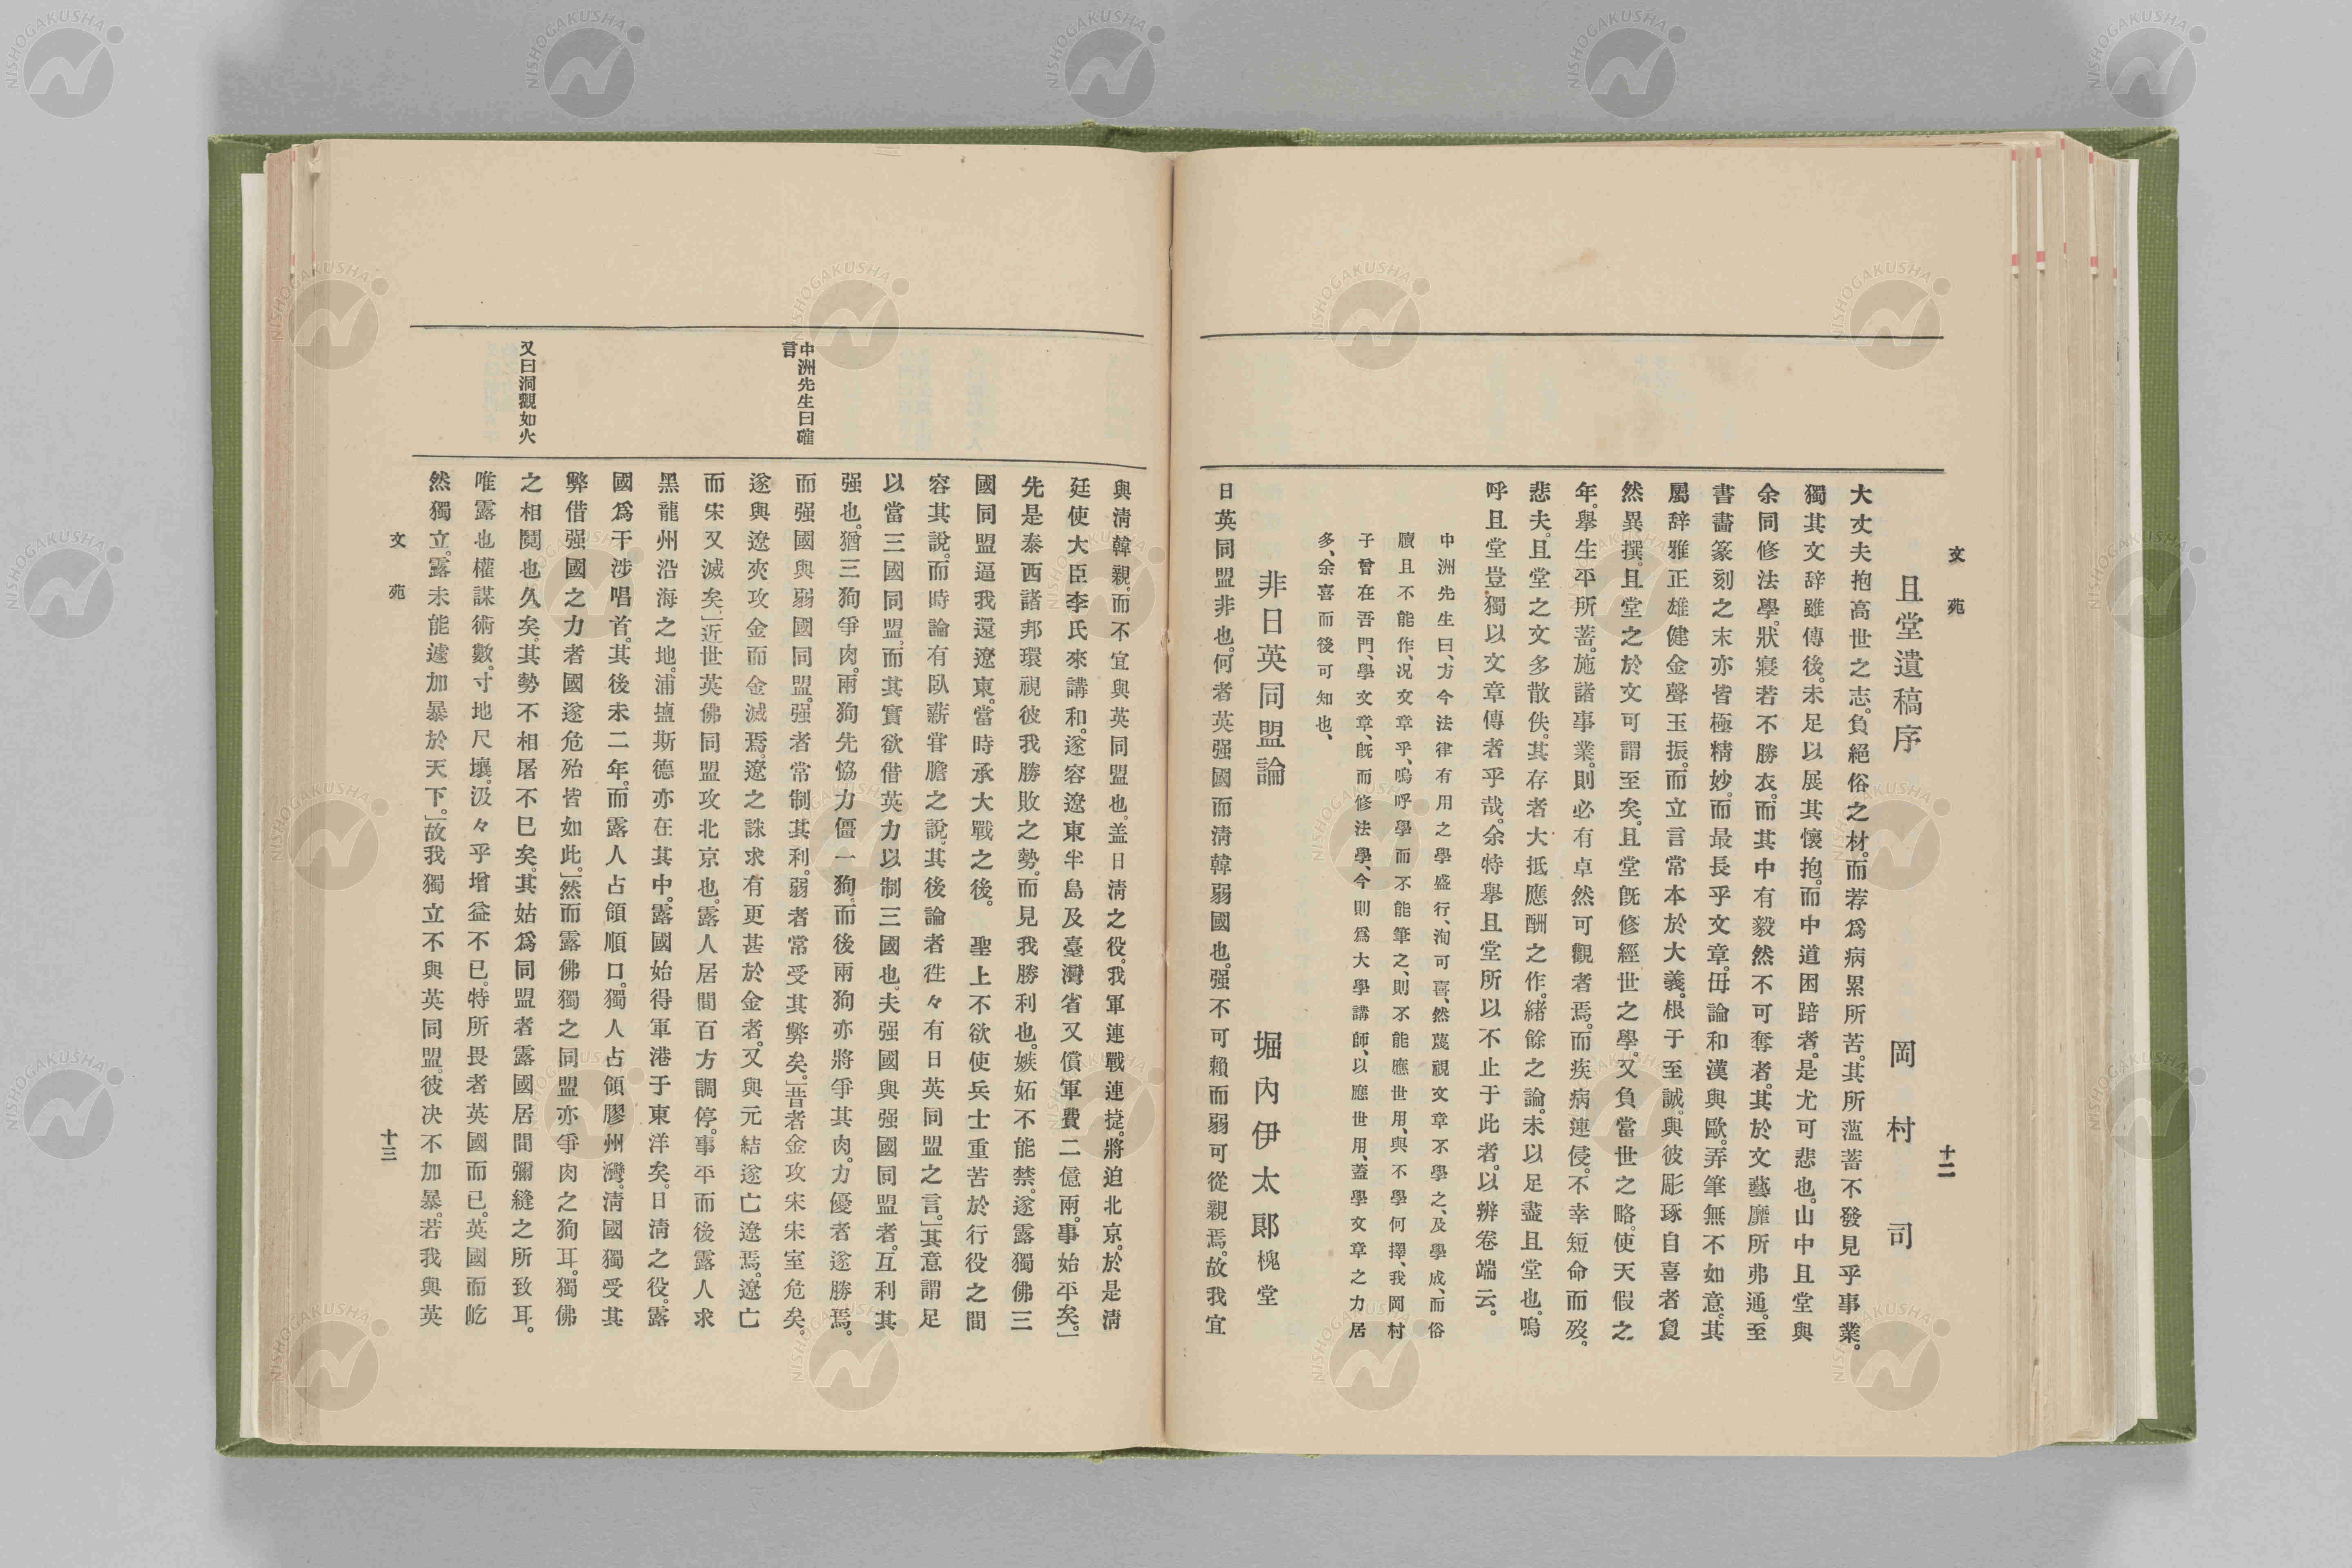 文苑
十二
且堂遺稿序
岡村司
大丈夫抱高世之志。負絕俗之材。而荐爲病累所苦。其所薀蓄不發見乎事業。
獨其文辭雖傳後。未足以展其懷抱。而中道困踣者。是尤可悲也。山中且堂與
余同修法學。狀寢若不勝衣。而其中有毅然不可奪者。其於文藝靡所弗通。至
書畵篆刻之末亦皆極精妙。而最長乎文章。毋論和漢與歐。弄筆無不如意。其
屬辞雅正雄健金聲玉振。而立言常本於大義。根于至誠。與彼彫琢自喜者敻
然異撰。且堂之於文可謂至矣。且堂旣修經世之學。又負當世之略。使天假之
年。擧生平所蓄。施諸事業。則必有卓然可觀者焉。而疾病連侵。不幸短命而歿。
悲夫。且堂之文多散佚。其存者大抵應酬之作。緒餘之論。未以足盡且堂也。嗚
呼且堂豈獨以文章傳者乎哉。余特擧且堂所以不止于此者。以辨卷端云。
中洲先生曰、方今法律有用之學盛行、洵可喜、然蔑視文章不學之、及學成、而俗
牘且不能作、况文章乎、嗚呼學而不能筆之、則不能應世用、與不學何擇、我岡村
子曾在吾門、學文章、旣而修法學、今則爲大學講師、以應世用、蓋學文章之力居
多、余喜而後可知也、
非日英同盟論
堀內伊太郞槐堂
日英同盟非也。何者英强國而淸韓弱國也。强不可賴而弱可從親焉。故我宜
與淸韓親。而不宜與英同盟也。盖日淸之役。我軍連戰連捷。將迫北京。於是淸
廷使大臣李氏來講和。遂容遼東半島及臺灣省又償軍費二億兩。事始平矣。」
先是泰西諸邦環視彼我勝敗之勢。而見我勝利也。嫉妬不能禁。遂露獨佛三
國同盟逼我還遼東。當時承大戰之後。　聖上不欲使兵士重苦於行役之間
容其說。而時論有臥薪甞膽之說。其後論者徃々有日英同盟之言。」其意謂足
以當三國同盟。而其實欲借英力以制三國也。夫强國與强國同盟者。互利其
强也。猶三狗爭肉。兩狗先恊力僵一狗。而後兩狗亦將爭其肉。力優者遂勝焉。
而强國與弱國同盟。强者常制其利。弱者常受其弊矣。」昔者金攻宋宋室危矣。
遂與遼夾攻金而金滅焉。遼之誅求有更甚於金者。又與元結遂亡遼焉。遼亡
而宋又滅矣。」近世英佛同盟攻北京也。露人居間百方調停。事平而後露人求
黑龍州沿海之地。浦塩斯德亦在其中。露國始得軍港于東洋矣。日淸之役。露
國爲干涉唱首。其後未二年。而露人占領順口。獨人占領膠州灣。淸國獨受其
弊借强國之力者國遂危殆皆如此。」然而露佛獨之同盟亦爭肉之狗耳。獨佛
之相鬩也久矣。其勢不相屠不巳矣。其姑爲同盟者露國居間彌縫之所致耳。
唯露也權謀術數。寸地尺壤。汲々乎增益不已。特所畏者英國而已。英國而屹
然獨立。露未能遽加暴於天下。」故我獨立不與英同盟。彼决不加暴。若我與英
中洲先生曰確
言
又曰洞觀如火
文苑
十三
NISHOGAKUSHA